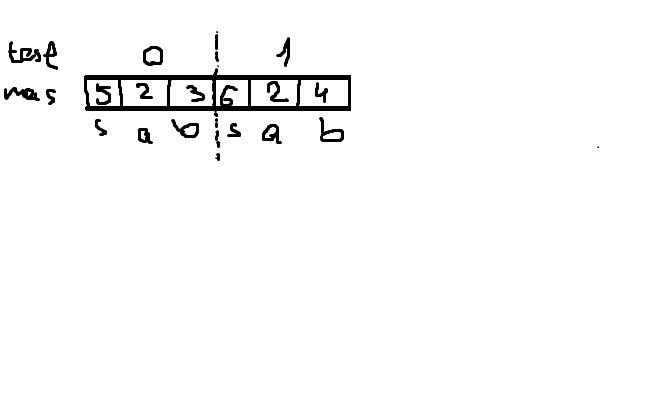 test 0 1
mas 5 2 3 6 2 4
s a b s a b